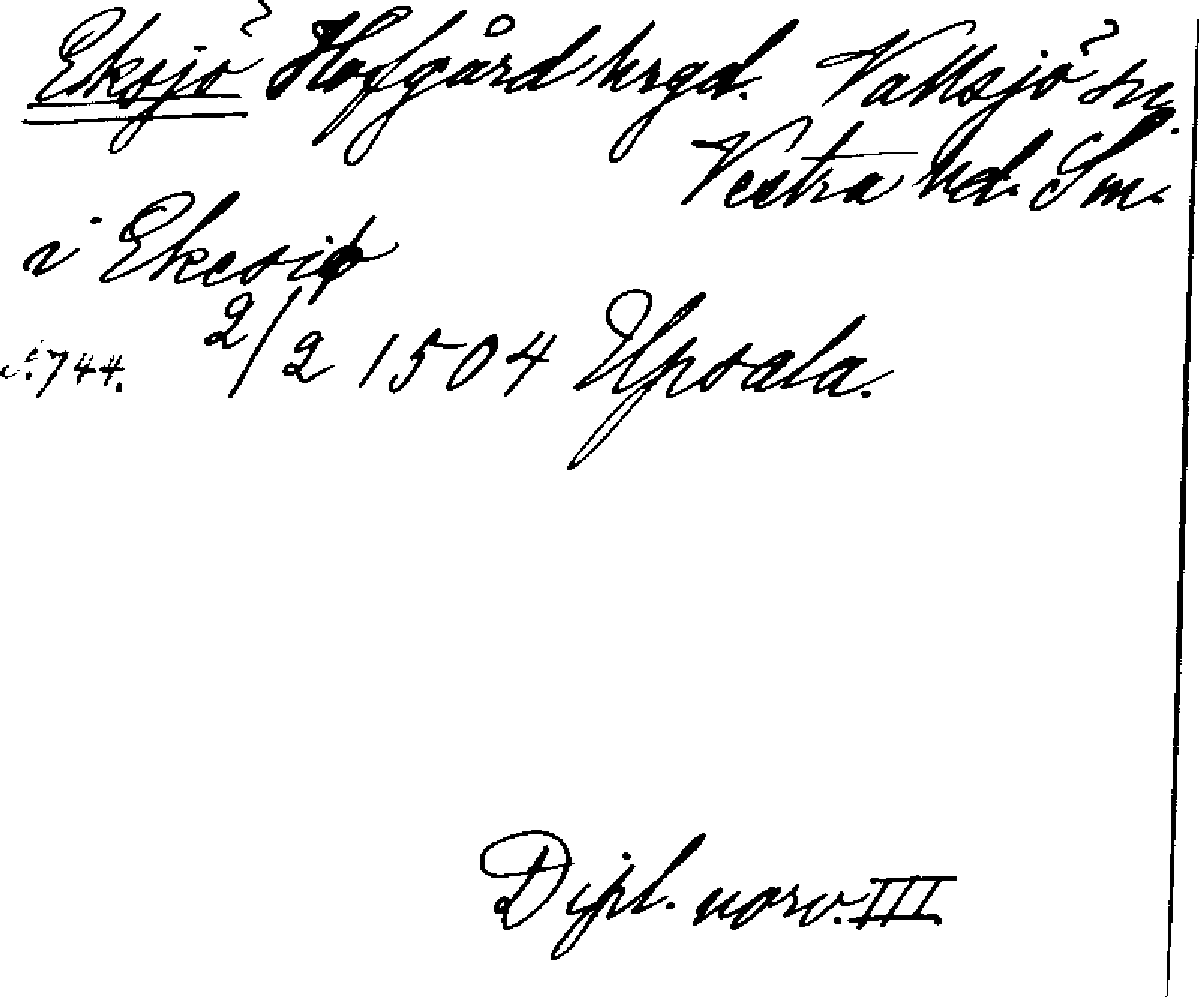 Eksjö Hofgård hrgd. Vallsjö sn.
Vestra hd. Sm.
i Ekesiø
s. 744. 2/2 1504 Upsala.
Dipl. norv. III